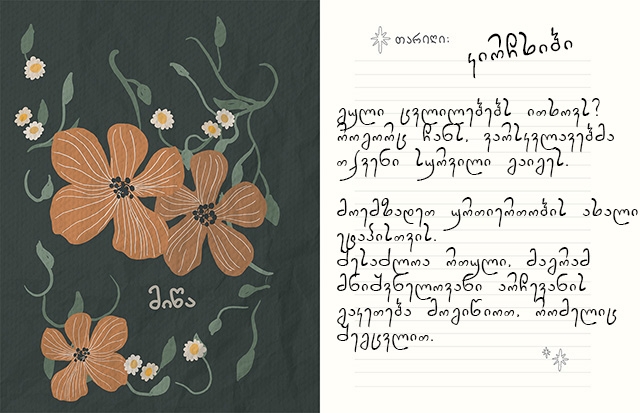 მიწა
თარიღი: კირჩხიბი
გული ცვლილებებს ითხოვს?
როგორც ჩანს, ვარსკვლავებმა
თქვენი სურვილი გაიგეს.
მოემზადეთ ურთიერთობის ახალი
ეტაპისთვის.
შესაძლოა რთული, მაგრამ
მნიშვნელოვანი არჩევანის
გაკეთება მოგიწიოთ, რომელიც
შეგცვლით.